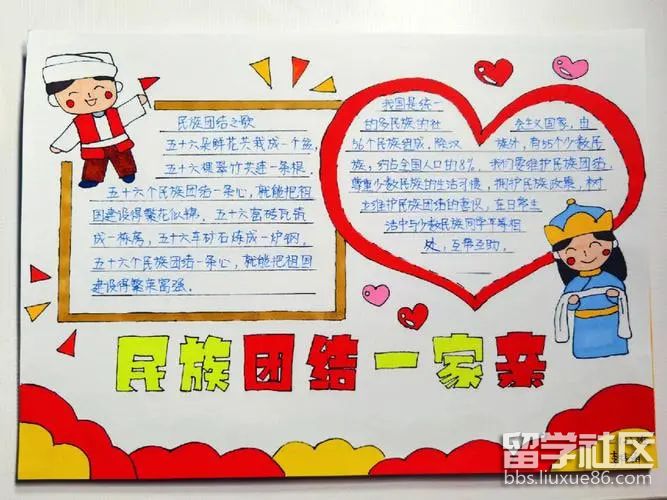 民族团结之歌
五十六朵鲜花关我成一个盆,
五十六棵翠竹共连一条根.
五十六个民族团结一条心,就能把祖
国建设得繁花似锦. 五十六窑砖瓦筑
成一栋房,五十六车矿石炼成一炉钢.
五十六个民族团结一条心,就能把祖国
建设得繁荣富强.
我国是统一
的多民族的社 会主义国家,由
56个民族组成,除汉 族外,有55个少数民
族,约占全国人口的8%,我们要维护民族团结
尊重少数民族的生活习惯,拥护民族政策,树
立维护民族团结的意识,在日常生
活中与少数民族同学平等相
处,互帮互助.
民族团结一家亲
留学社区
bbs.liuxue86.com